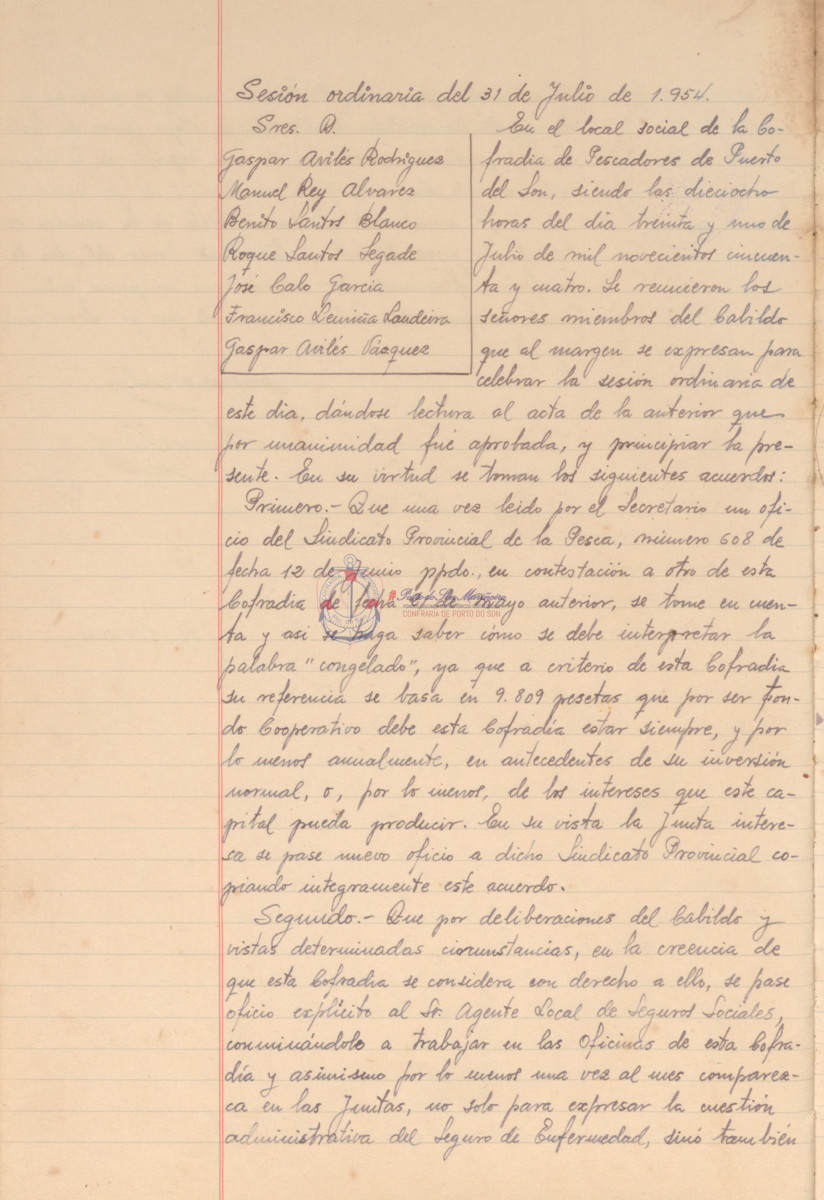 Sesión ordinaria del 31 de Julio de 1.954.
Sres. D.
Gaspar Avilés Rodriguez
Manuel Rey Alvarez
Benito Santos Blanco
Roque Santos Segade
José Calo Garcia
Francisco Deniña Landeira
Gaspar Avilés Vázquez
En el local social de la Co-
fradia de Pescadores de Puerto
del Son, siendo las dieciocho
horas del dia treinta y uno de
Julio de mil novecientos cincuen-
ta y cuatro. Se reunieron los
señores miembros del Cabildo
que al margen se expresan para
celebrar la sesión ordinaria de
este dia, dándose lectura al acta de la anterior que
por unanimidad fué aprobada, y principiar la pre-
sente. En su virtud se toman los siguientes acuerdos:
Primero.- Que una vez leido por el Secretario un ofi-
cio del Sindicato Provincial de la Pesca, número 608 de
fecha 12 de Junio ppdo., en contestación a otro de esta
Cofradia de fecha de Mayo anterior, se tome en cuen-
ta y asi se haga saber como se debe interpretar la
palabra "congelado", ya que a criterio de esta Cofradia
su referencia se basa en 9.809 pesetas que por ser Fon-
do Cooperativo debe esta Cofradia estar siempre, y por
lo menos anualmente, en antecedentes de su inversión
normal, o, por lo menos, de los intereses que este ca-
pital pueda producir. En su vista la Junta intere-
sa se pase nuevo oficio a dicho Sindicato Provincial co-
piando integramente este acuerdo.
Segundo.- Que por deliberaciones del Cabildo y
vistas determinadas circunstancias, en la creencia de
que esta Cofradia se considera con derecho a ello, se pase
oficio explícito al Sr. Agente Local de Seguros Sociales,
conminándole a trabajar en las Oficinas de esta Cofra-
día y asimismo por lo menos una vez al mes comparez-
ca en las Juntas, no solo para expresar la cuestión
administrativa del Seguro de Enfermedad, sinó también
CONFRARIA DE PORTO DO SON